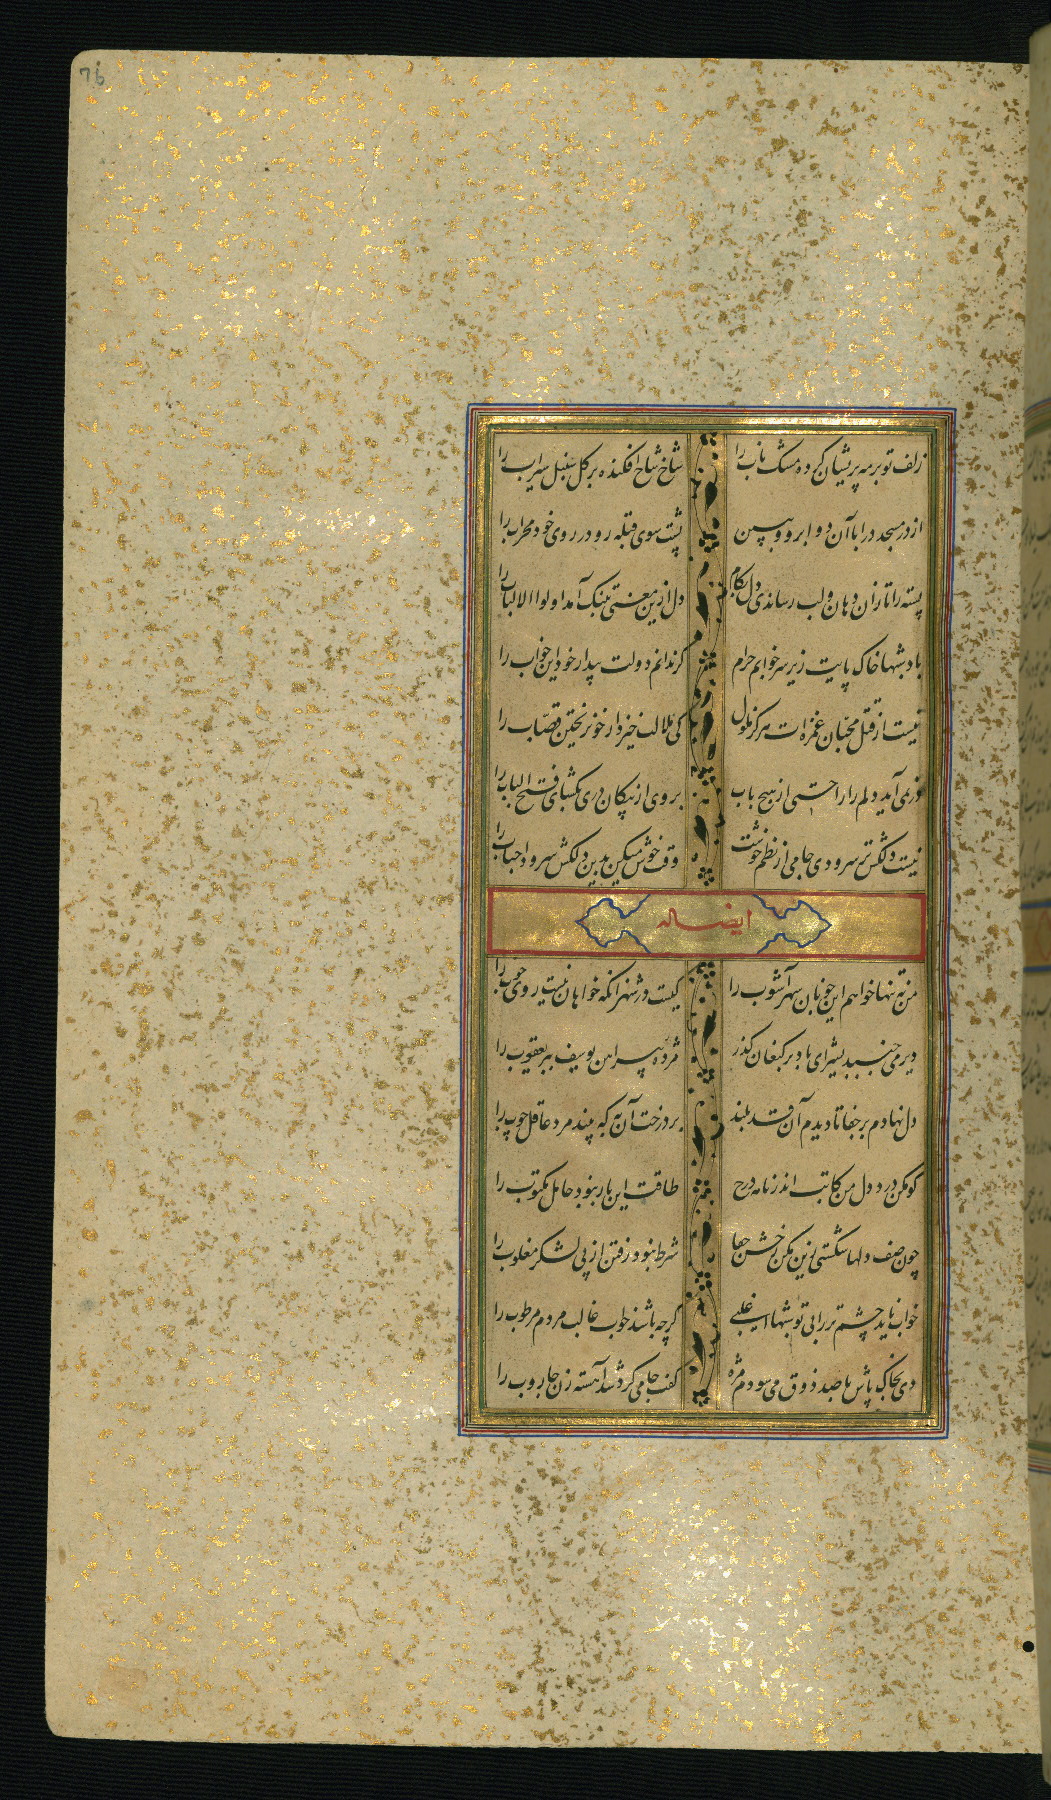 7b
زلف تو بر مه پریشان کرده مشک ناب را شاخ شاخ افکنده بر گل سنبل سیراب را
از در مسجد درا با آن دو ابرو و ببین پشت سوی قبله رو در روی خود محراب را
پسته را تا زان دهان و لب رساندی دل بکام دل ازین معنی بتنگ آمد اولوا الالباب را
باد شبها خاک پایت زیر سر خوابم حرام گر ندانم دولت بیدار خود این خواب را
نیست از قتل محبان غمزه‌ات هرگز ملول کی ملالت خیزد از خون ریختن قصاب را
در نمی آید دلم را راحتی از هیچ باب بروی از پیکان دری بگشای فتح الباب را
نیست دلکش‌تر سرودی جامی از نظم خوشت وقت خوش میکن بدین دلکش سرود احباب را
ایضا له
من نه تنها خواهم این خوبان شهرآشوب را کیست در شهر آنکه خواهان نیست روی خوب را
دیر می جنبد بشیر ای باد بر کنعان گذر مژده پیراهن یوسف ببر یعقوب را
دل نهادم بر جفا تا دیدم آن قد بلند بر درخت آن به که بیند مرد عاقل چوب را
گو مکن درد دل من کاتب اندر نامه درج طاقت این بار نبود حامل مکتوب را
چون صف دلها شکستی زین مکن رخش جفا شرط نبود رفتن از پی لشکر مغلوب را
خواب ناید چشم تر را بی تو شبها ای گرچه باشد خواب غالب مردم مرطوب را
دی بخاک پاش با صد ذوق می سودم مژه گفت جامی گرد شد آهسته زن جاروب را